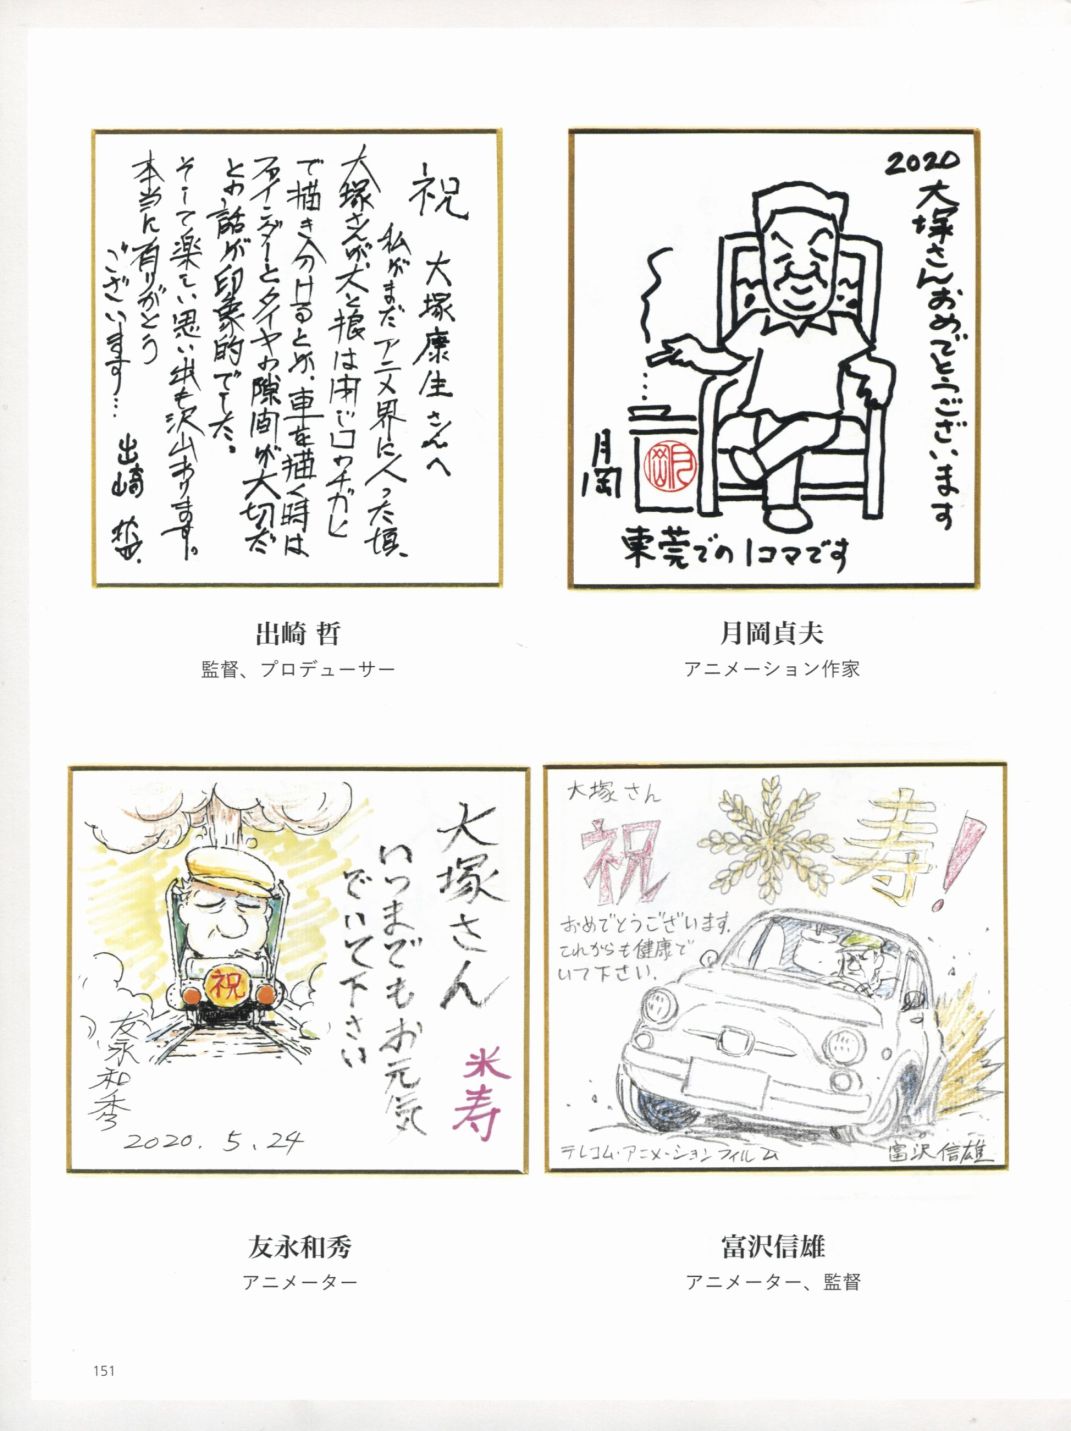 祝
大塚康生さんへ
私がまだアニメ界に入った頃、
大塚さんが、犬と狼は同じロウチガヒ
で描き分けるとか、車を描く時は
フェンダーとタイヤの隙間が大切だ
との話が印象的でした。
そして楽しい思い出も沢山あります。
本当に有りがとう
ございます…
出崎 哲
2020
大塚さんおめでとうございます
月岡
東莞での1コマです
出崎 哲
監督、プロデューサー
月岡貞夫
アニメーション作家
大塚さん
いつまでもお元気
でいて下さい
米寿
祝
友永和秀
2020.5.24
大塚さん
祝 米 寿!
おめでとうございます。
これからも健康で
いて下さい。
テレコム・アニメーションフィルム
富沢信雄
友永和秀
アニメーター
富沢信雄
アニメーター、監督
151